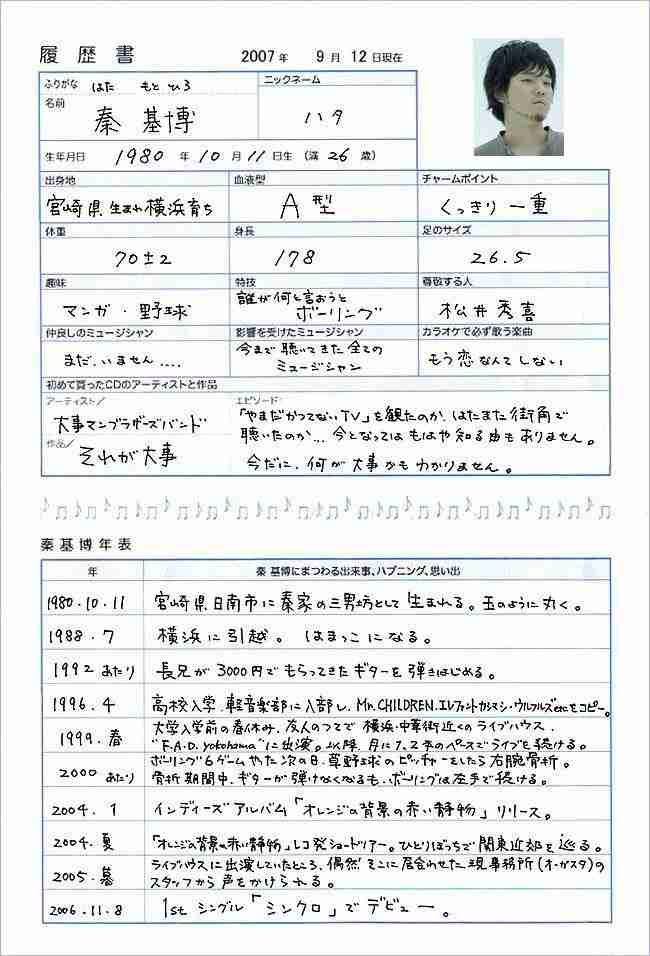 履歴書 2007年 9月 12日現在
ふりがな はた もと ひろ
ニックネーム
名前 秦 基博
ハタ
生年月日 1980年 10月 11日生 (満 26歳)
出身地 血液型 チャームポイント
宮崎県生まれ横浜育ち A型 くっきり一重
体重 身長 足のサイズ
70±2 178 26.5
趣味 特技 尊敬する人
マンガ・野球 誰が何と言おうと
ボーリング 松井秀喜
仲良しのミュージシャン 影響を受けたミュージシャン カラオケで必ず歌う楽曲
まだ、いません.... 今まで聴いてきた全ての
ミュージシャン もう恋なんてしない
初めて買ったCDのアーティストと作品
アーティスト/
大事マンブラザーズバンド
作品/
それが大事
エピソード
「やまだかつてないTV」を観たのか、はたまた街角で
聴いたのか…今となってはもはや知る由もありません。
今だに、何が大事かもわかりません。
秦 基博年表
年 秦 基博にまつわる出来事、ハプニング、思い出
1980.10.11 宮崎県日南市に秦家の三男坊として生まれる。玉のように丸く。
1988.7 横浜に引越。はまっこになる。
1992 あたり 長兄が3000円でもらってきたギターを弾きはじめる。
1996.4 高校入学、軽音楽部に入部し、Mr.CHILDREN、エレファントカシマシ・ウルフルズetcをコピー。
1999.春 大学入学前の春休み、友人のつてで横浜・中華街近くのライブハウス、
"F.A.D. yokohama"に出演。以降、月に1、2本のペースでライブを続ける。
2000 あたり ボーリング6ゲームやった次の日、草野球のピッチャーをしたら右腕骨折。
骨折期間中、ギターが弾けなくなるも、ボーリングは左手で続ける。
2004.1 インディーズアルバム「オレンジの背景の赤い静物」リリース。
2004.夏 「オレンジの背景の赤い静物」レコ発ショートツアー。ひとりぼっちで関東近郊を巡る。
2005.暮 ライブハウスに出演していたところ、偶然そこに居合わせた現事務所(オーガスタ)の
スタッフから声をかけられる。
2006.11.8 1stシングル「シンクロ」でデビュー。